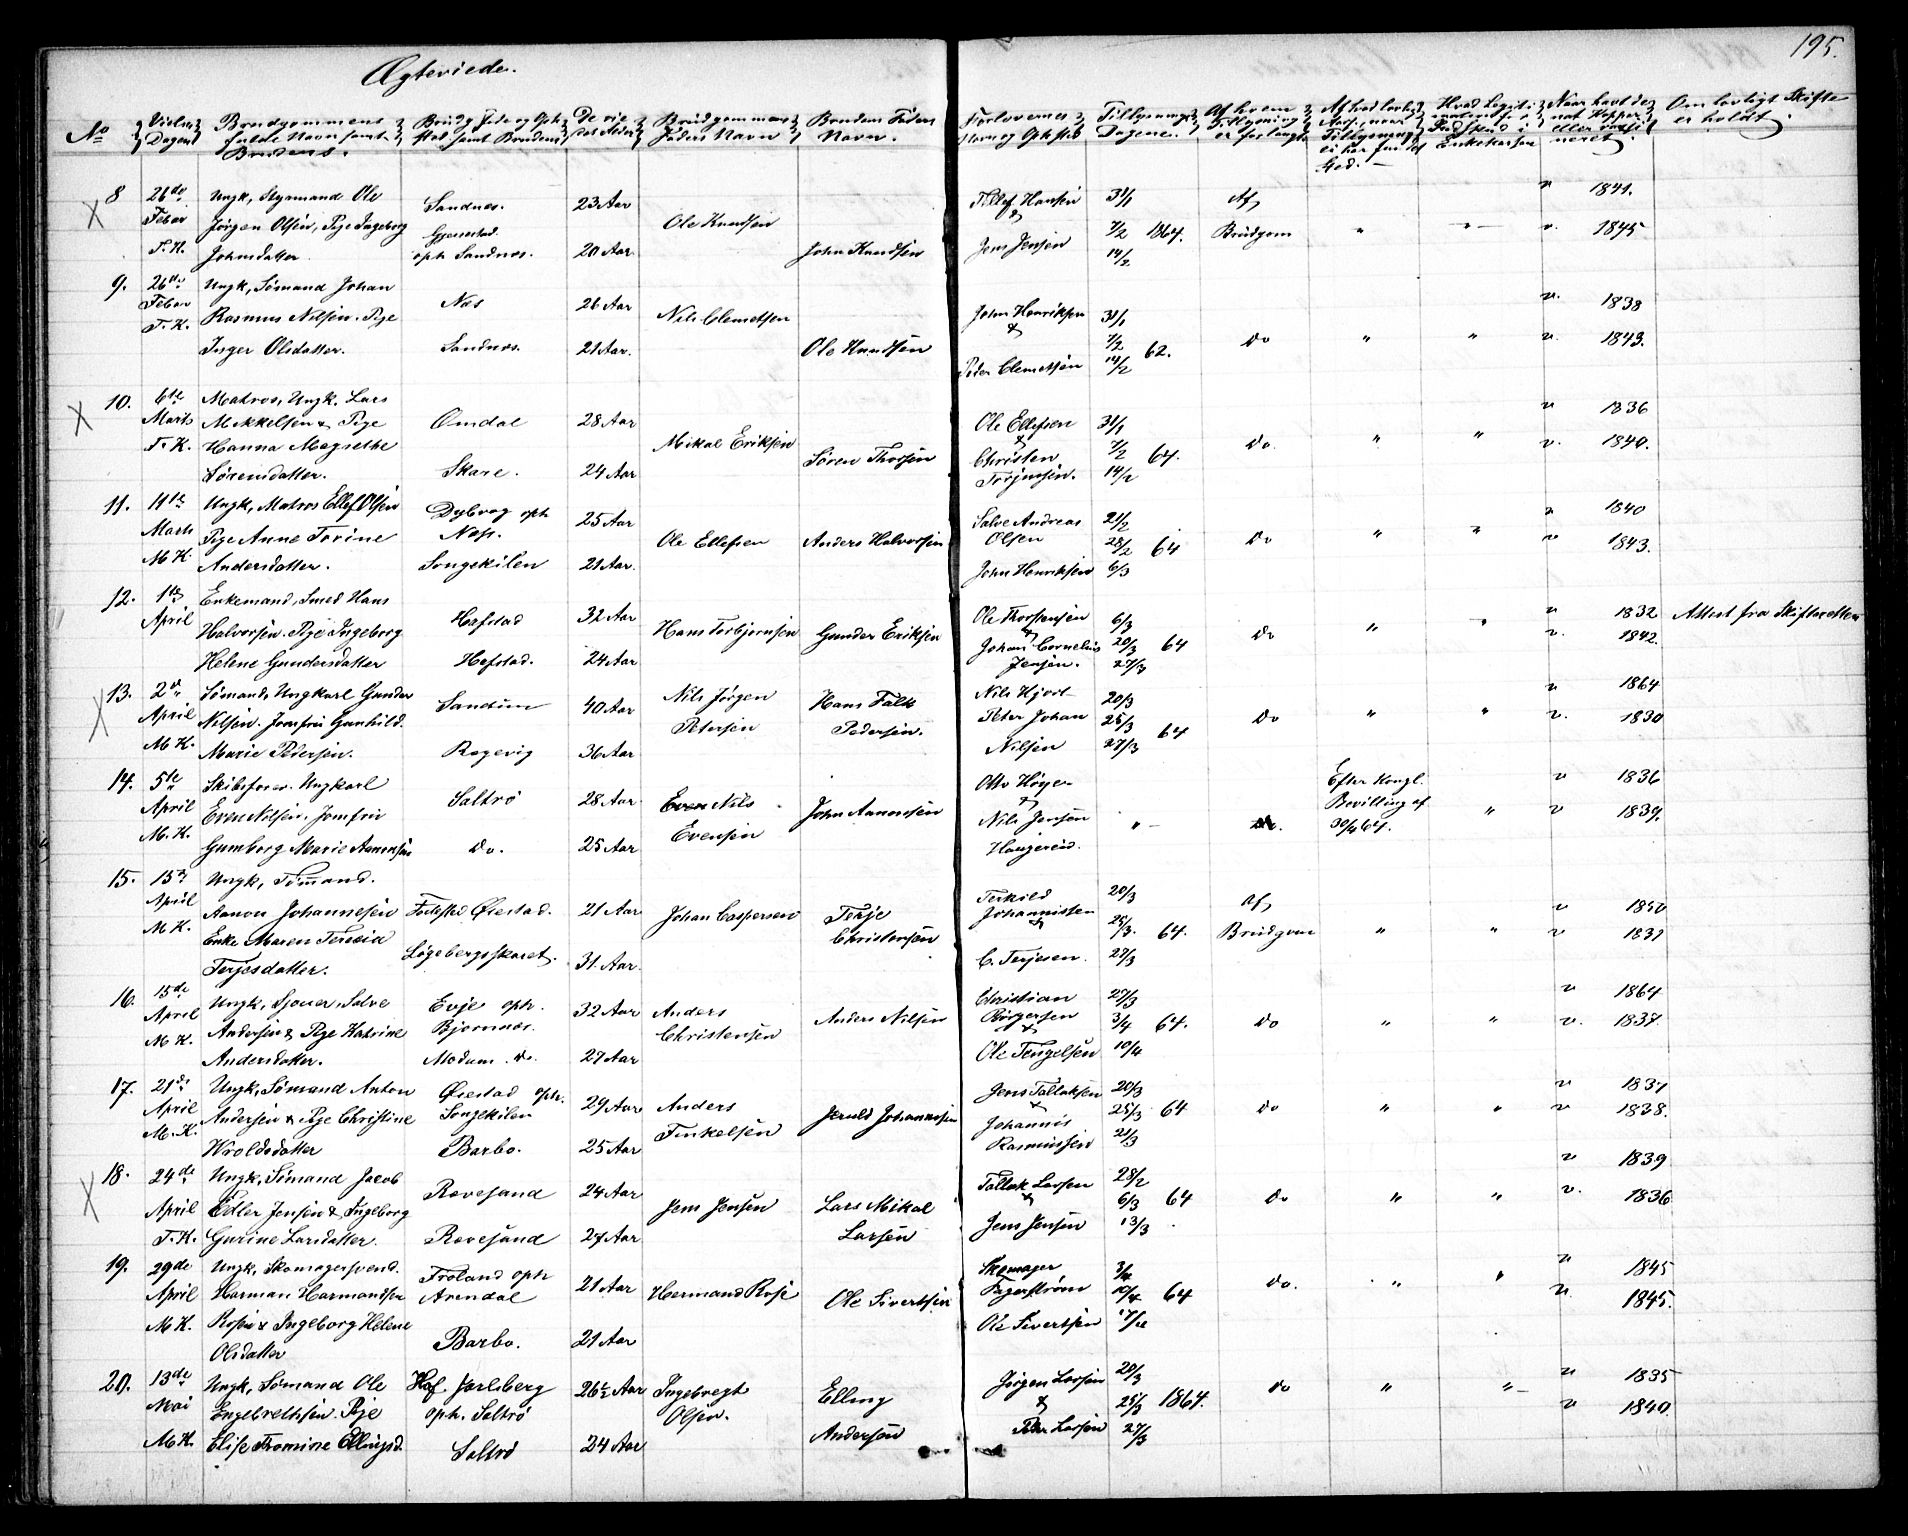 195.
Ægteviede.
No
Vielses Dagen
Brudgommens fulde Navn samt Brudens.
Brudg. Føde og Oph. Sted samt Brudens
De vie- des Alder
Brudgommens Faders Navn
Brudens Faders Navn.
Forlovernes Navn og Opholds
Tillysnings Dagene.
Af hvem Tillysning er forlangt
Om lovligt Skifte er holdt.
8 26de Febar F.K.
Ungk, Styrmand Ole
Jørgen Olsen, Pige Ingeborg
Johnsdatter.
Sandnes.
Gjerestad.
oph Sandnes.
23 Aar
20 Aar
Ole Knudsen
John Knudsen
Tellef Hansen
&
Jens Jensen
31/1
7/2 1864.
14/2
Af
Brudgom
" " v. 1841.
v. 1845
9. 26de Febar F.K.
Ungk, Sømand Johan
Rasmus Nilsen. Pige
Inger Olsdatter.
Næs
Sandnæs.
26 Aar
21 Aar.
Nils Clemetsen
Ole Knudsen
John Henriksen
&
Peder Clemetsen
31/1
7/2 62.
14/2
Do " " v. 1838
v. 1843.
10. 6te Marts F.K.
Matros, Ungk. Lars
Mikkelsen & Pige
Hanna Magrethe
Sørensdatter.
Omdal
Skare.
28 Aar
24 Aar
Mikal Eriksen
Søren Thorsen
Ole Ellefsen
&
Christen
Torjussen.
31/1
7/2 64.
14/2
Do. " " v 1836
v. 1840.
11. 11te Marts M.K.
Ungk, Matros Ellef Olsen
Pige Anne Torine
Andersdatter.
Dybvog oph
Næss.
Songekilen
25 Aar
21 Aar.
Ole Ellefsen
Anders Halvorsen
Salve Andreas
Olsen
John Henriksen
21/2
28/2 64
6/3
Do " " v 1840
v 1843.
12. 1te April
Enkemand, Smed Hans
Halvorsen. Pige Ingeborg
Helene Gundersdatter
Hafstad
Hafstad.
32 Aar
24 Aar
Hans Torbjørnsen
Gunder Eriksen
Ole Thorsensen
&
Johan Cornelius
Jensen.
6/3
20/3 64
27/3
Do " " v 1832
v. 1842.
Attest fra Skifteretten
13. 2d April M.K.
Sømand, Ungkarl Gunder
Nilsen. Jomfru Gunhild.
Marie Pedersen.
Sandum
Ragevig
40 Aar
36 Aar
Nils Jørgen
Petersen
Hans Falk
Pedersen.
Nils Hjort
Peter Johan
Nilsen
20/3
25/3 64
27/3
Do " " v 1864
v. 1830
14. 5te April M.K.
Skibsfører. Ungkarl
Even Nilsen, Jomfru
Gumborg Marie Aanonsen
Saltrø
Do.
28 Aar
25 Aar
Even Nils
Evensen
John Aanonsen
Otto Høyer
&
Nils Jensen
Haugerød.
" Do.
Efter Kongl.
Bevilling af
30/4 64.
" v 1836
v 1839.
15. 15de April M.K.
Ungk, Sømand.
Aanon Johannesen
Enke Maren Teresia
Terjesdatter.
Fødested Øiestad.
Løgebergsskaret.
21 Aar
31 Aar
Johan Caspersen
Terje
Christensen
Terkild
Johannissen
&
C. Terjesen.
20/3
25/3. 64.
27/3
Af
Brudgom
" " v 1850
v 1831
16. 15de April M.K.
Ungk, Sjouer, Salve
Andersen & Pige Katrine
Andersdatter.
Evje oph.
Bjornnæs.
Modum. Do.
32 Aar
27 Aar
Anders
Christensen
Anders Nilsen
Christian
Børgersen
&
Ole Tengelsen
27/3
3/4 64.
10/4
Do " " v 1864
v. 1837.
17. 21de April M.K.
Ungk, Sømand Anton
Andersen & Pige Christine
Wroldsdatter
Øiestad oph.
Songekilen
Barbo.
29 Aar
25 Aar
Anders
Finkelsen
Jeruld Johannesen
Jens Tallaksen
&
Johannis
Rasmussen
20/3
25/3 64
21/3
Do " " v 1837
v 1838.
18. 24de April F.K.
Ungk, Sømand Jacob
Edler Jensen & Ingeborg
Gurine Larsdatter.
Rævesand
Rævesand
24 Aar
27 Aar
Jens Jensen
Lars Mikal
Larsen
Tallak Larsen
&
Jens Jensen
28/2
6/3 64
13/3
Do " " v 1839
v. 1836
19. 29de April M.K.
Ungk, Skomagersvend.
Harman Harmandsen
Rosse & Ingeborg Helene
Olsdatter
Froland oph
Arendal
Barbo.
21 Aar
21 Aar
Hermand Rose
Ole Sivertsen
Skomager
Fagerstrøm
Ole Sivertsen
3/4
10/4 64
17/4
Do. " " v 1845
v. 1845.
20. 13de Mai M.K.
Ungk, Sømand Ole
Engebrethsen. Pige
Elise Tromine Ellingsd.
Haf. Jarlsberg
oph. Saltrø
Saltrø
26½ Aar
24 Aar
Ingebregt
Olsen.
Elling
Andersen
Jørgen Larsen
&
Peder Larsen
20/3
25/3 1864.
27/3
Do " " v 1835
v 1840.